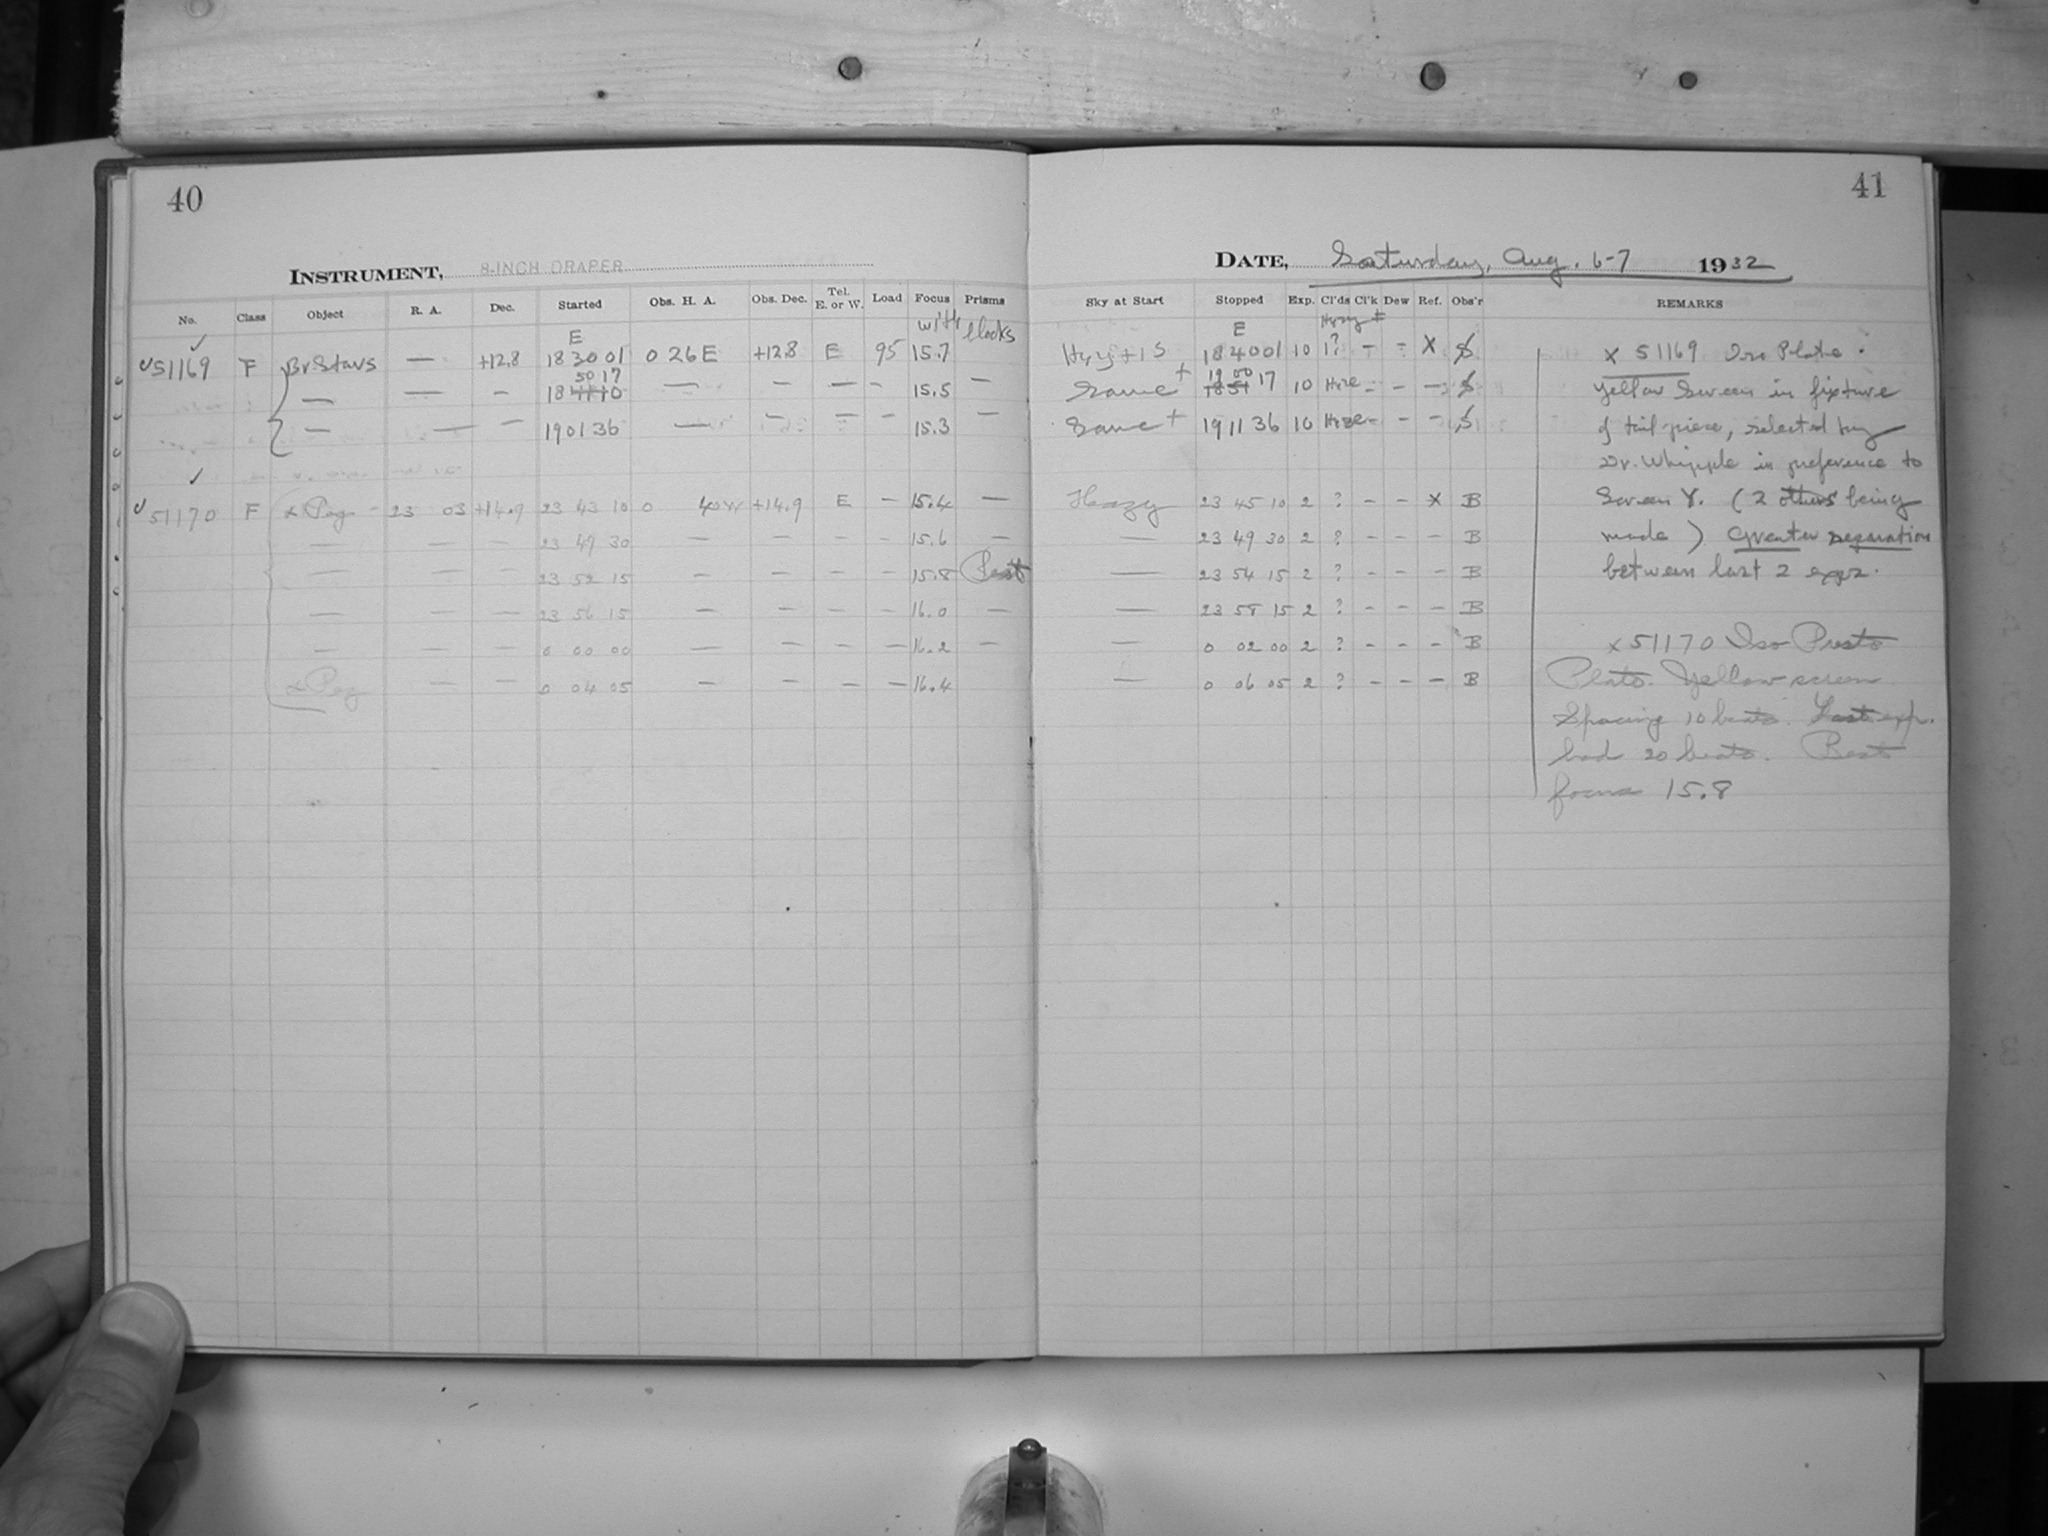 40
INSTRUMENT, 8-INCH DRAPER
No. Class Object R. A. Dec. Started Obs. H. A. Obs. Dec. Tel. E. or W. Load Focus Prisms
with blocks
E
✓51169 F Br Stars — +12.8 18 30 01 0 26 E +12.8 E 95 15.7
50 17
— — — 18 41 10 — — — — 15.5 —
— — — 19 01 36 — — — — 15.3 —
✓51170 F α Peg 23 03 +14.9 23 43 10 0 40W +14.9 E — 15.4 —
— — — 23 49 30 — — — — 15.6 —
— — — 23 52 15 — — — — 15.8 Best
— — — 23 56 15 — — — — 16.0 —
— — — 0 00 00 — — — — 16.2 —
α Peg — — 0 04 05 — — — — 16.4
41
DATE, Saturday, Aug. 6-7 1932
Sky at Start Stopped Exp. Cl'ds Cl'k Dew Ref. Obs'r REMARKS
E
18 40 01 10 1? — — X S
19 00
Same + 18 51 17 10 — — — S
Same + 19 11 36 10 — — — S
Hazy 23 45 10 2 ? — — X B
— 23 49 30 2 ? — — — B
— 23 54 15 2 ? — — — B
— 23 58 15 2 ? — — — B
— 0 02 00 2 ? — — — B
— 0 06 05 2 ? — — — B
x 51169 Iso Plate.
Yellow Screen in fixture
of tail-piece, selected by
Dr. Whipple in preference to
Screen Y. (2 others being
made) Greater separation
between last 2 exps.
x 51170 Iso Presto
Plate. Yellow screen
Spacing 10 beats. Last exp.
had 20 beats. Best
focus 15.8